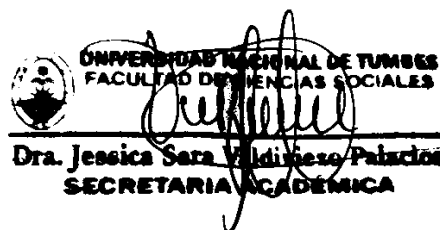 UNIVERSIDAD NACIONAL DE TUMBES
FACULTAD DE CIENCIAS SOCIALES
Dra. Jessica Sara Valdiviezo Palacios
SECRETARIA ACADÉMICA